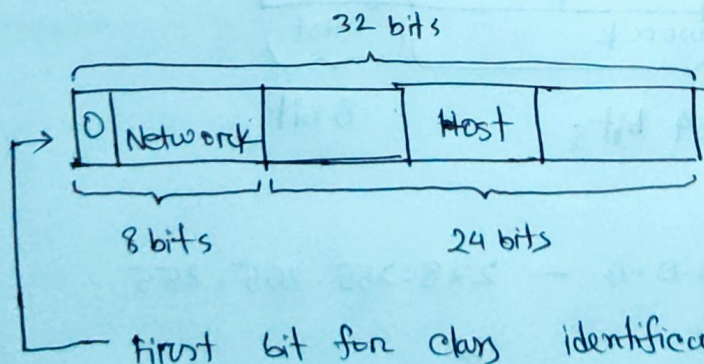 32 bits
0 Network Host
8 bits 24 bits
First bit for class identific